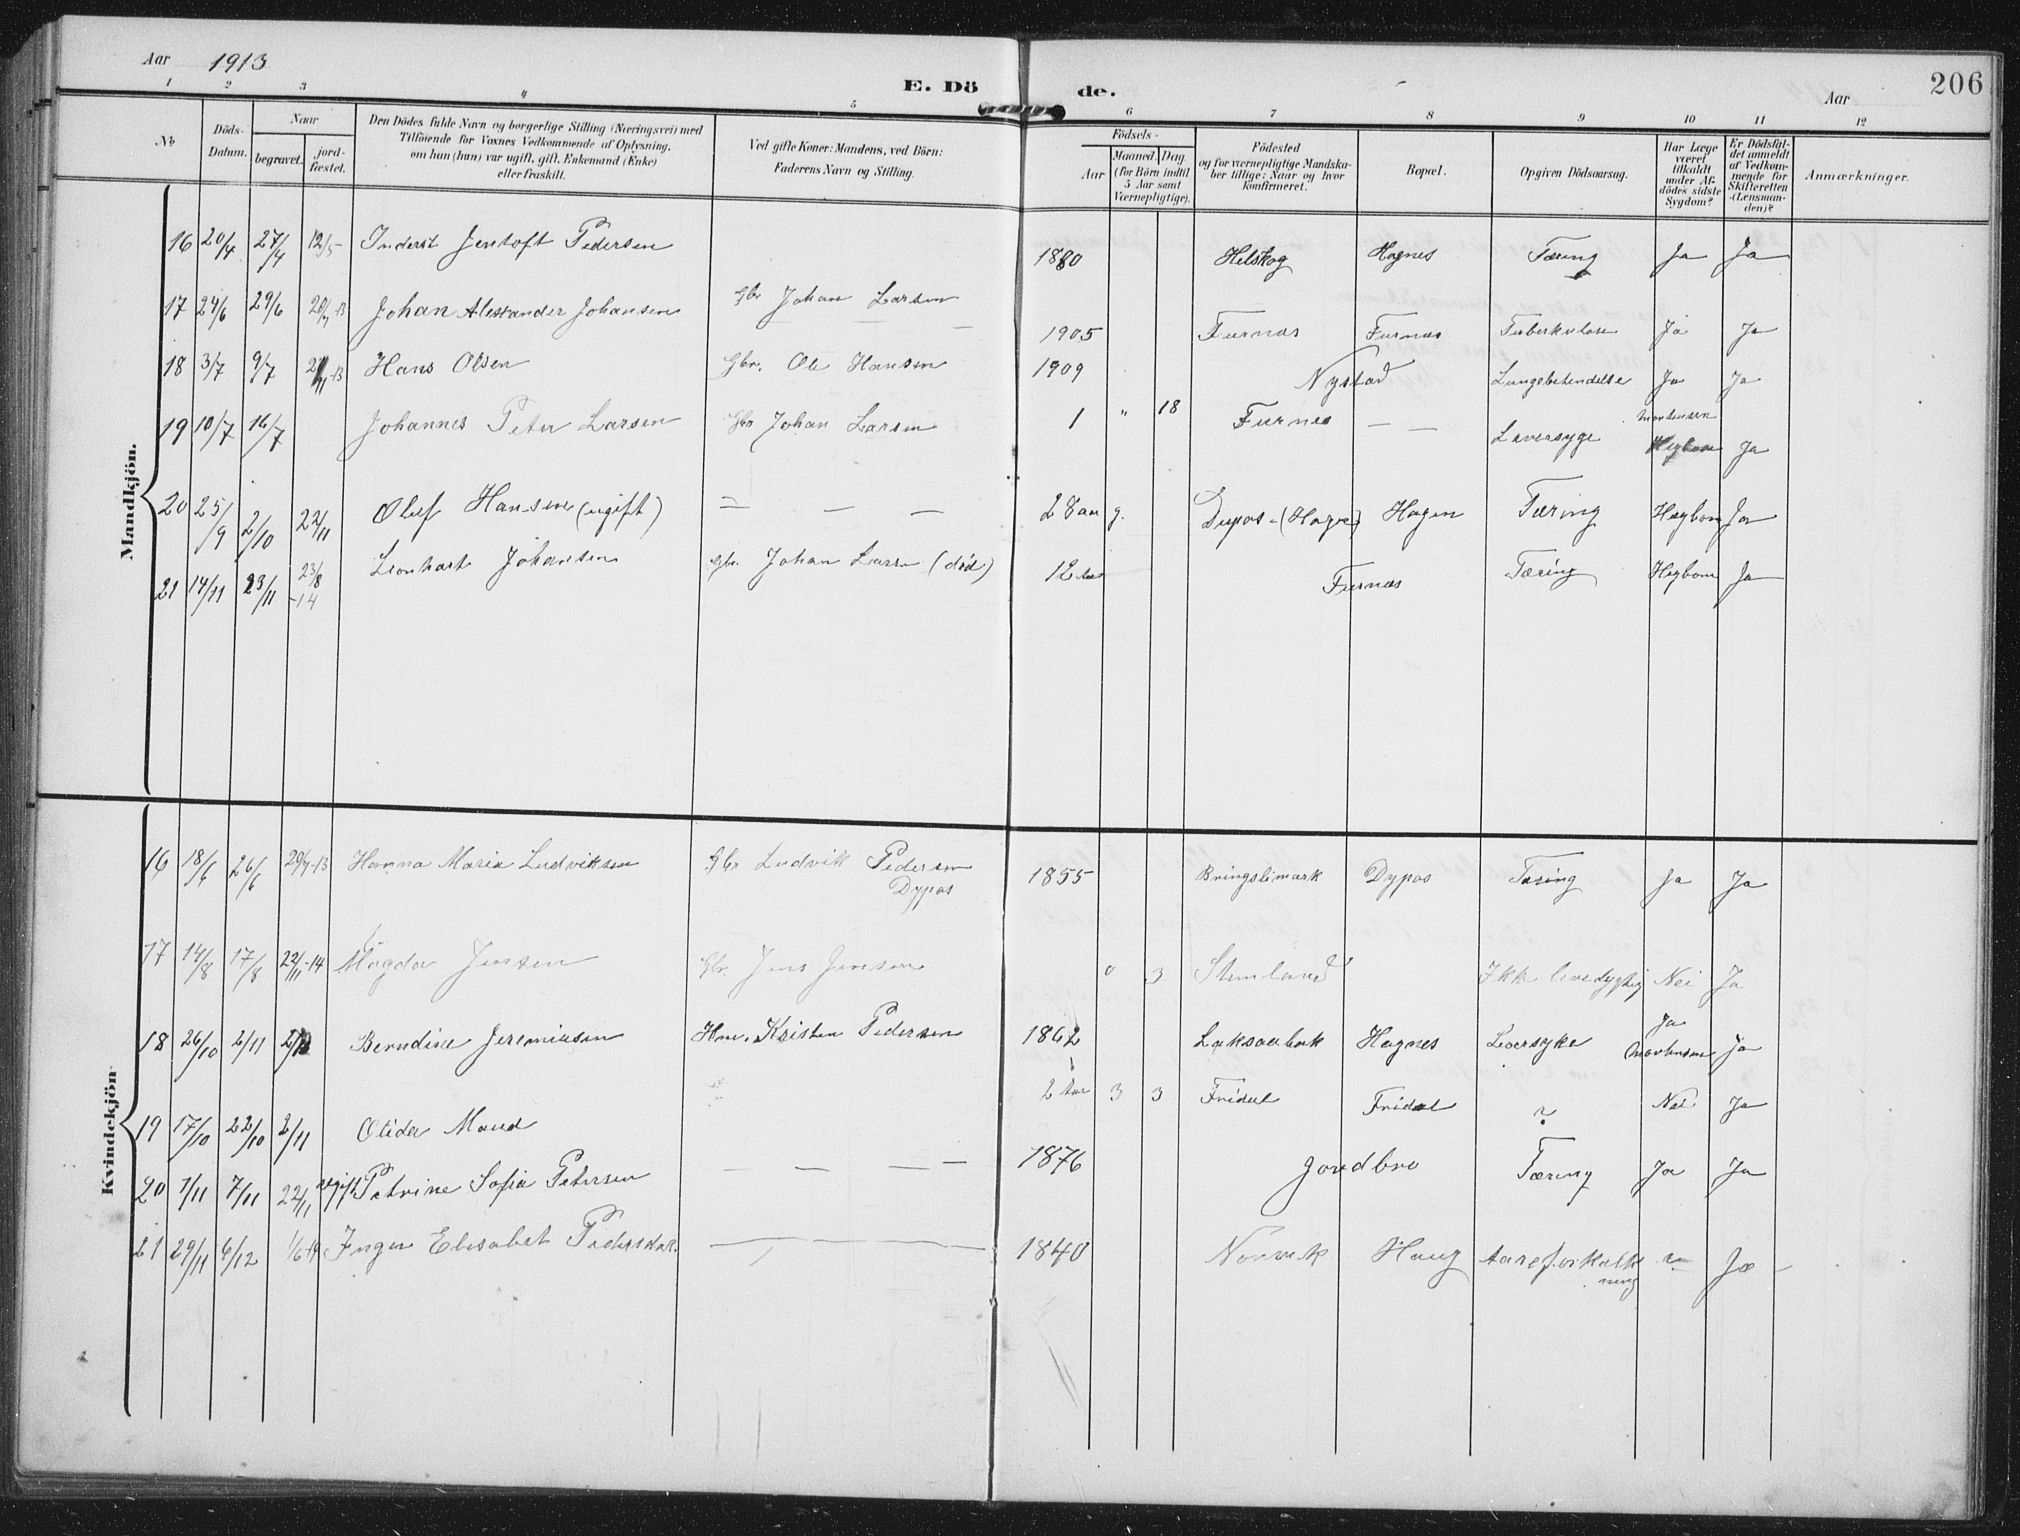 Aar 1913
E. Döde.
Aar
206
1 2 3 4 5 6 7 8 9 10 11 12
No.
Döds-Datum.
Naar
begravet.
jordfæstet.
Den Dödes fulde Navn og borgerlige Stilling (Næringsvei) med
Tilföiende for Voxnes Vedkommende af Oplysning,
om han (hun) var ugift, gift, Enkemand (Enke)
eller fraskilt.
Ved gifte Koner: Mandens, ved Börn:
Faderens Navn og Stilling.
Födsels-
Aar
Maaned. Dag.
(for Börn indtil
5 Aar samt
Værnepligtige).
Födested
og for værnepligtige Mandska-
ber tillige: Naar og hvor
konfirmeret.
Bopæl.
Opgiven Dödsaarsag.
Har Læge
været
tilkaldt
under Af-
dödes sidste
Sygdom?
Er Dödsfal-
det anmeldt
af Vedkom-
mende for
Skifteretten
(Lensman-
den)?
Anmærkninger.
Mandkjön.
16 20/4 27/4 12/5 Inderst Jentoft Pedersen 1880 Helskog Hagnes Tæring Ja Ja
17 24/6 29/6 20/7-13 Johan Alexander Johansen Gbr Johan Larsen 1905 Furnæs Furnæs Tuberkulose Ja Ja
18 3/7 9/7 Hans Olsen Gbr. Ole Hansen 1909 Nystad Lungebetendelse Ja Ja
19 10/7 16/7 Johannes Peter Larsen Gbr Johan Larsen 1 " 18 Furnes — — Leversyge Mortensen Heybom Ja
20 25/9 2/10 22/11 Oluf Hansen (ugift) — — — 28 aar g. Dypos (Hagen) Hagen Tæring Heybom Ja
21 14/11 23/11 23/8-14 Leonhart Johansen Gbr. Johan Larsen (död) 12 Aar Furnæs Tæring Heybom Ja
Kvindekjön
16 18/6 26/6 20/7-13 Hanna Maria Ludviksen Gbr Ludvik Pedersen
Dypos 1855 Bringslimark Dypos Tæring Ja Ja
17 14/8 17/8 22/11-14 Magda Jensen Gbr. Jens Jensen 0 3 Stenland Ikke levedygtig Nei Ja
18 26/10 2/11 Berndine Jeremiasen Hm. Kristen Pedersen 1862 Laksaabak Hagnes Leversyke Ja
Mortensen Ja
19 17/10 22/10 2/11 Olida Maud 2 Aar 3 3 Fridal Fridal ? Nei Ja
20 1/11 7/11 22/11 ugift Petrine Sofie Petersen — — — — 1876 Jordbro Tæring Ja Ja
21 29/11 6/12 1/6-14 Inger Elisabet Pedersdat. — 1840 Norvik Haug Aareforkalk
ning ? Ja